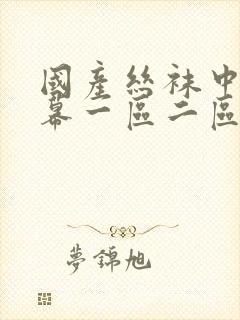 國產絲袜中
幕一區二區
夢錦旭